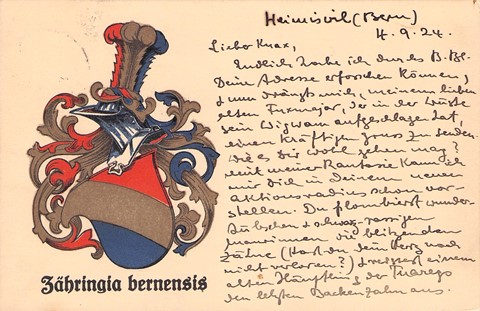 Heimiswil (Bern)
4.9.24.
Lieber Knax,
Endlich habe ich durch B.Bl.
Deine Adresse erforschen können,
& nun drängts mich, meinem lieben
alten Fuxmajor, der in der Wüste
sein Wigwam aufgeschlagen hat,
einen kräftigen Gruss zu senden.
Wie es Dir wohl gehen mag?
mit meiner Fantasie kann ich
mir Dich in Deinem neuen
Aktionsradius schon vor-
stellen. Du plombierst wunder-
hübschen & schwarz-rassigen
die blitzenden
Zähne (Hast du dein Herz noch
nicht verloren?) & reissest einem
alten Häuptling der Tuaregs
den letzten Backenzahn aus.
Zähringia bernensis